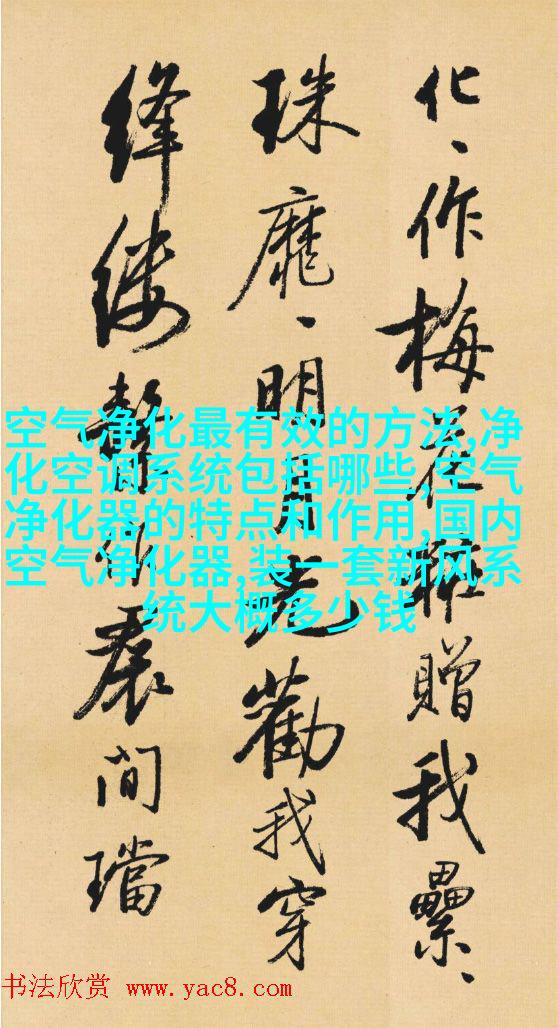 化、作梅花贈我纍、
珠靡、明月老勸我穿
絳縷作裙間璫
空气净化最有效的方法,净
化空调系统包括哪些,空气
净化器的特点和作用,国内
空气净化器,装一套新风系
统大概多少钱
书法欣赏 www.yac8.com